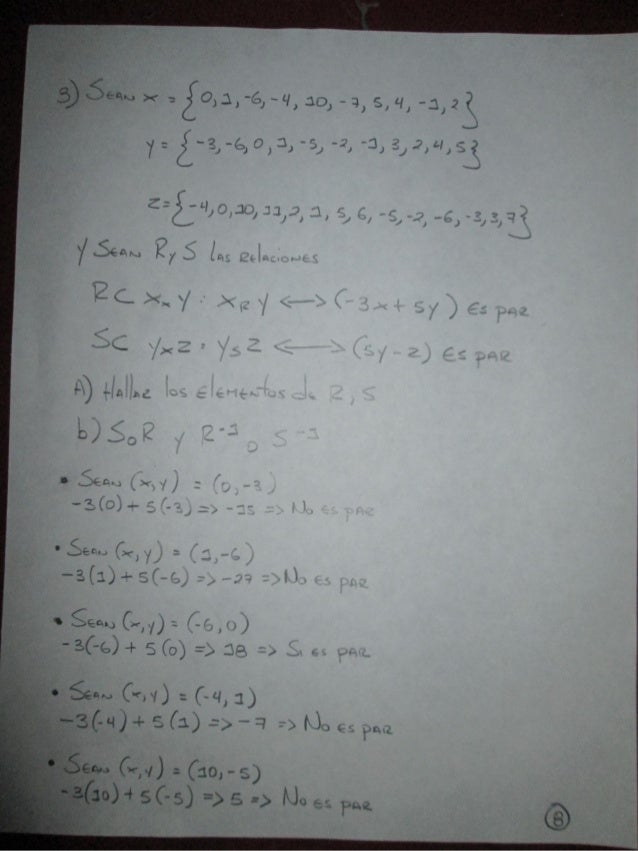 3) Sean x = {0, 1, -6, -4, 10, -7, 5, 4, -1, 2}
y = {-3, -6, 0, 1, -5, -2, -1, 3, 2, 4, 5}
z = {-4, 0, 10, 11, 2, 1, 5, 6, -5, -2, -6, -3, 3, 7}
y Sean R y S las relaciones
R ⊂ X x Y : X R Y <-> (-3x + 5y) es par
S ⊂ Y x Z : Y S Z <-> (5y - z) es par
A) Hallar los elementos de R, S
b) S o R y R⁻¹ o S⁻¹
• Sean (x, y) = (0, -3)
-3(0) + 5(-3) => -15 => No es par
• Sean (x, y) = (1, -6)
-3(1) + 5(-6) => -27 => No es par
• Sean (x, y) = (-6, 0)
-3(-6) + 5(0) => 18 => Si es par
• Sean (x, y) = (-4, 1)
-3(-4) + 5(1) => -7 => No es par
• Sean (x, y) = (10, -5)
-3(10) + 5(-5) => 5 => No es par
8